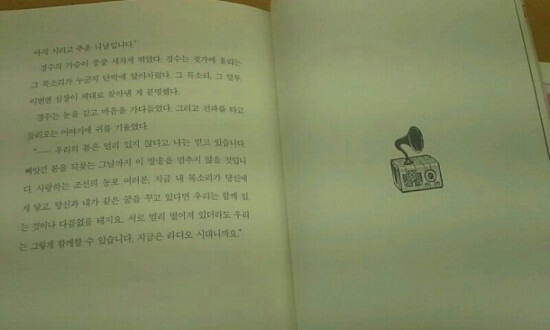 아직 시리고 추운 나날입니다."
경수의 가슴이 쿵쿵 세차게 뛰었다. 경수는 귓가에 울리는
그 목소리가 누군지 단박에 알아차렸다. 그 목소리, 그 말투.
이번엔 심장이 제대로 찾아낸 게 분명했다.
경수는 눈을 감고 마음을 가다듬었다. 그리고 전파를 타고
들려오는 이야기에 귀를 기울였다.
"—— 우리의 봄은 멀리 있지 않다고 나는 믿고 있습니다.
빼앗긴 봄을 되찾는 그날까지 이 방송을 멈추지 않을 것입니
다. 사랑하는 조선의 동포 여러분, 지금 내 목소리가 당신에
게 닿고, 당신과 내가 같은 꿈을 꾸고 있다면 우리는 함께 있
는 것이나 다름없을 테지요. 서로 멀리 떨어져 있더라도 우리
는 그렇게 함께할 수 있습니다. 지금은 라디오 시대니까요."